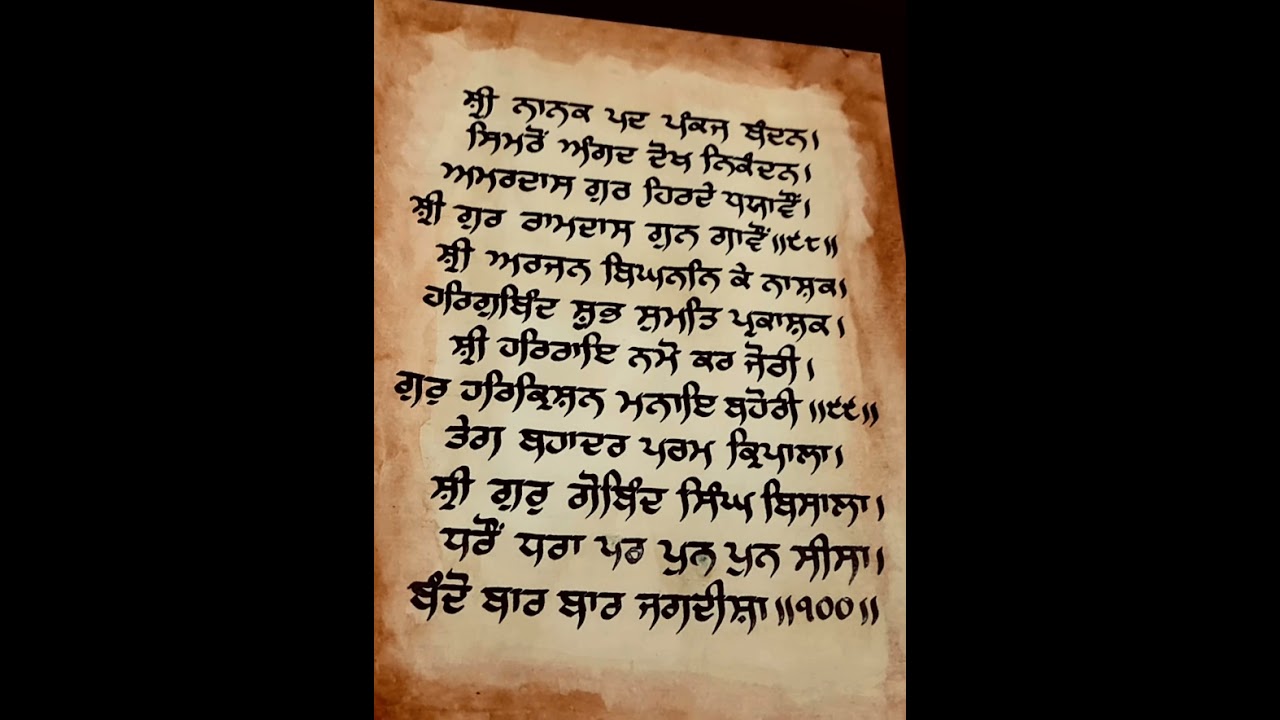 ਸ਼੍ਰੀ ਨਾਨਕ ਪਦ ਪੰਕਜ ਬੰਦਨ।
ਸਿਮਰੋਂ ਅੰਗਦ ਦੋਖ ਨਿਕੰਦਨ।
ਅਮਰਦਾਸ ਗੁਰ ਹਿਰਦੇ ਧਯਾਵੌਂ।
ਸ਼੍ਰੀ ਗੁਰ ਰਾਮਦਾਸ ਗੁਨ ਗਾਵੌਂ॥੯੮॥
ਸ਼੍ਰੀ ਅਰਜਨ ਬਿਘਨਨਿ ਕੇ ਨਾਸ਼ਕ।
ਹਰਿਗੁਬਿੰਦ ਸ਼ੁਭ ਸੁਮਤਿ ਪ੍ਰਕਾਸ਼ਕ।
ਸ਼੍ਰੀ ਹਰਿਰਾਇ ਨਮੋ ਕਰ ਜੋਰੀ।
ਗੁਰੁ ਹਰਿਕ੍ਰਿਸ਼ਨ ਮਨਾਇ ਬਹੋਰੀ॥੯੯॥
ਤੇਗ ਬਹਾਦਰ ਪਰਮ ਕ੍ਰਿਪਾਲਾ।
ਸ਼੍ਰੀ ਗੁਰੁ ਗੋਬਿੰਦ ਸਿੰਘ ਬਿਸਾਲਾ।
ਧਰੌਂ ਧਰਾ ਪਰ ਪੁਨ ਪੁਨ ਸੀਸਾ।
ਬੰਦੋ ਬਾਰ ਬਾਰ ਜਗਦੀਸ਼ਾ॥੧੦੦॥